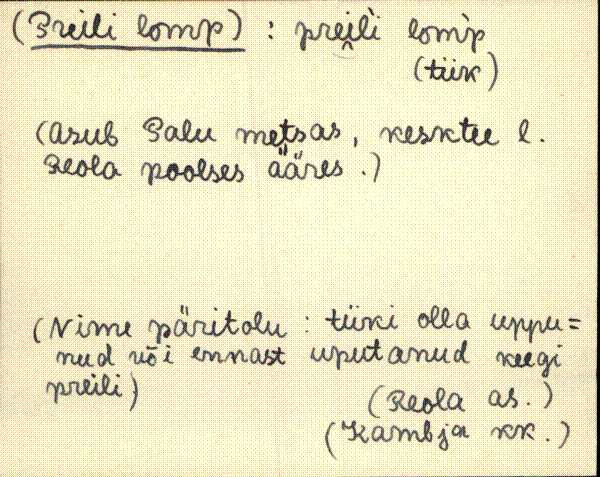 (Preili lomp) : prei̯l̀i lom̀p
(tiik)
(Asub Palu metsas, kesktee l.
Reola poolses ääres.)
(Nime päritolu : tiiki olla uppu=
nud või ennast uputanud keegi
preili)
(Reola as.)
(Kambja kk.)